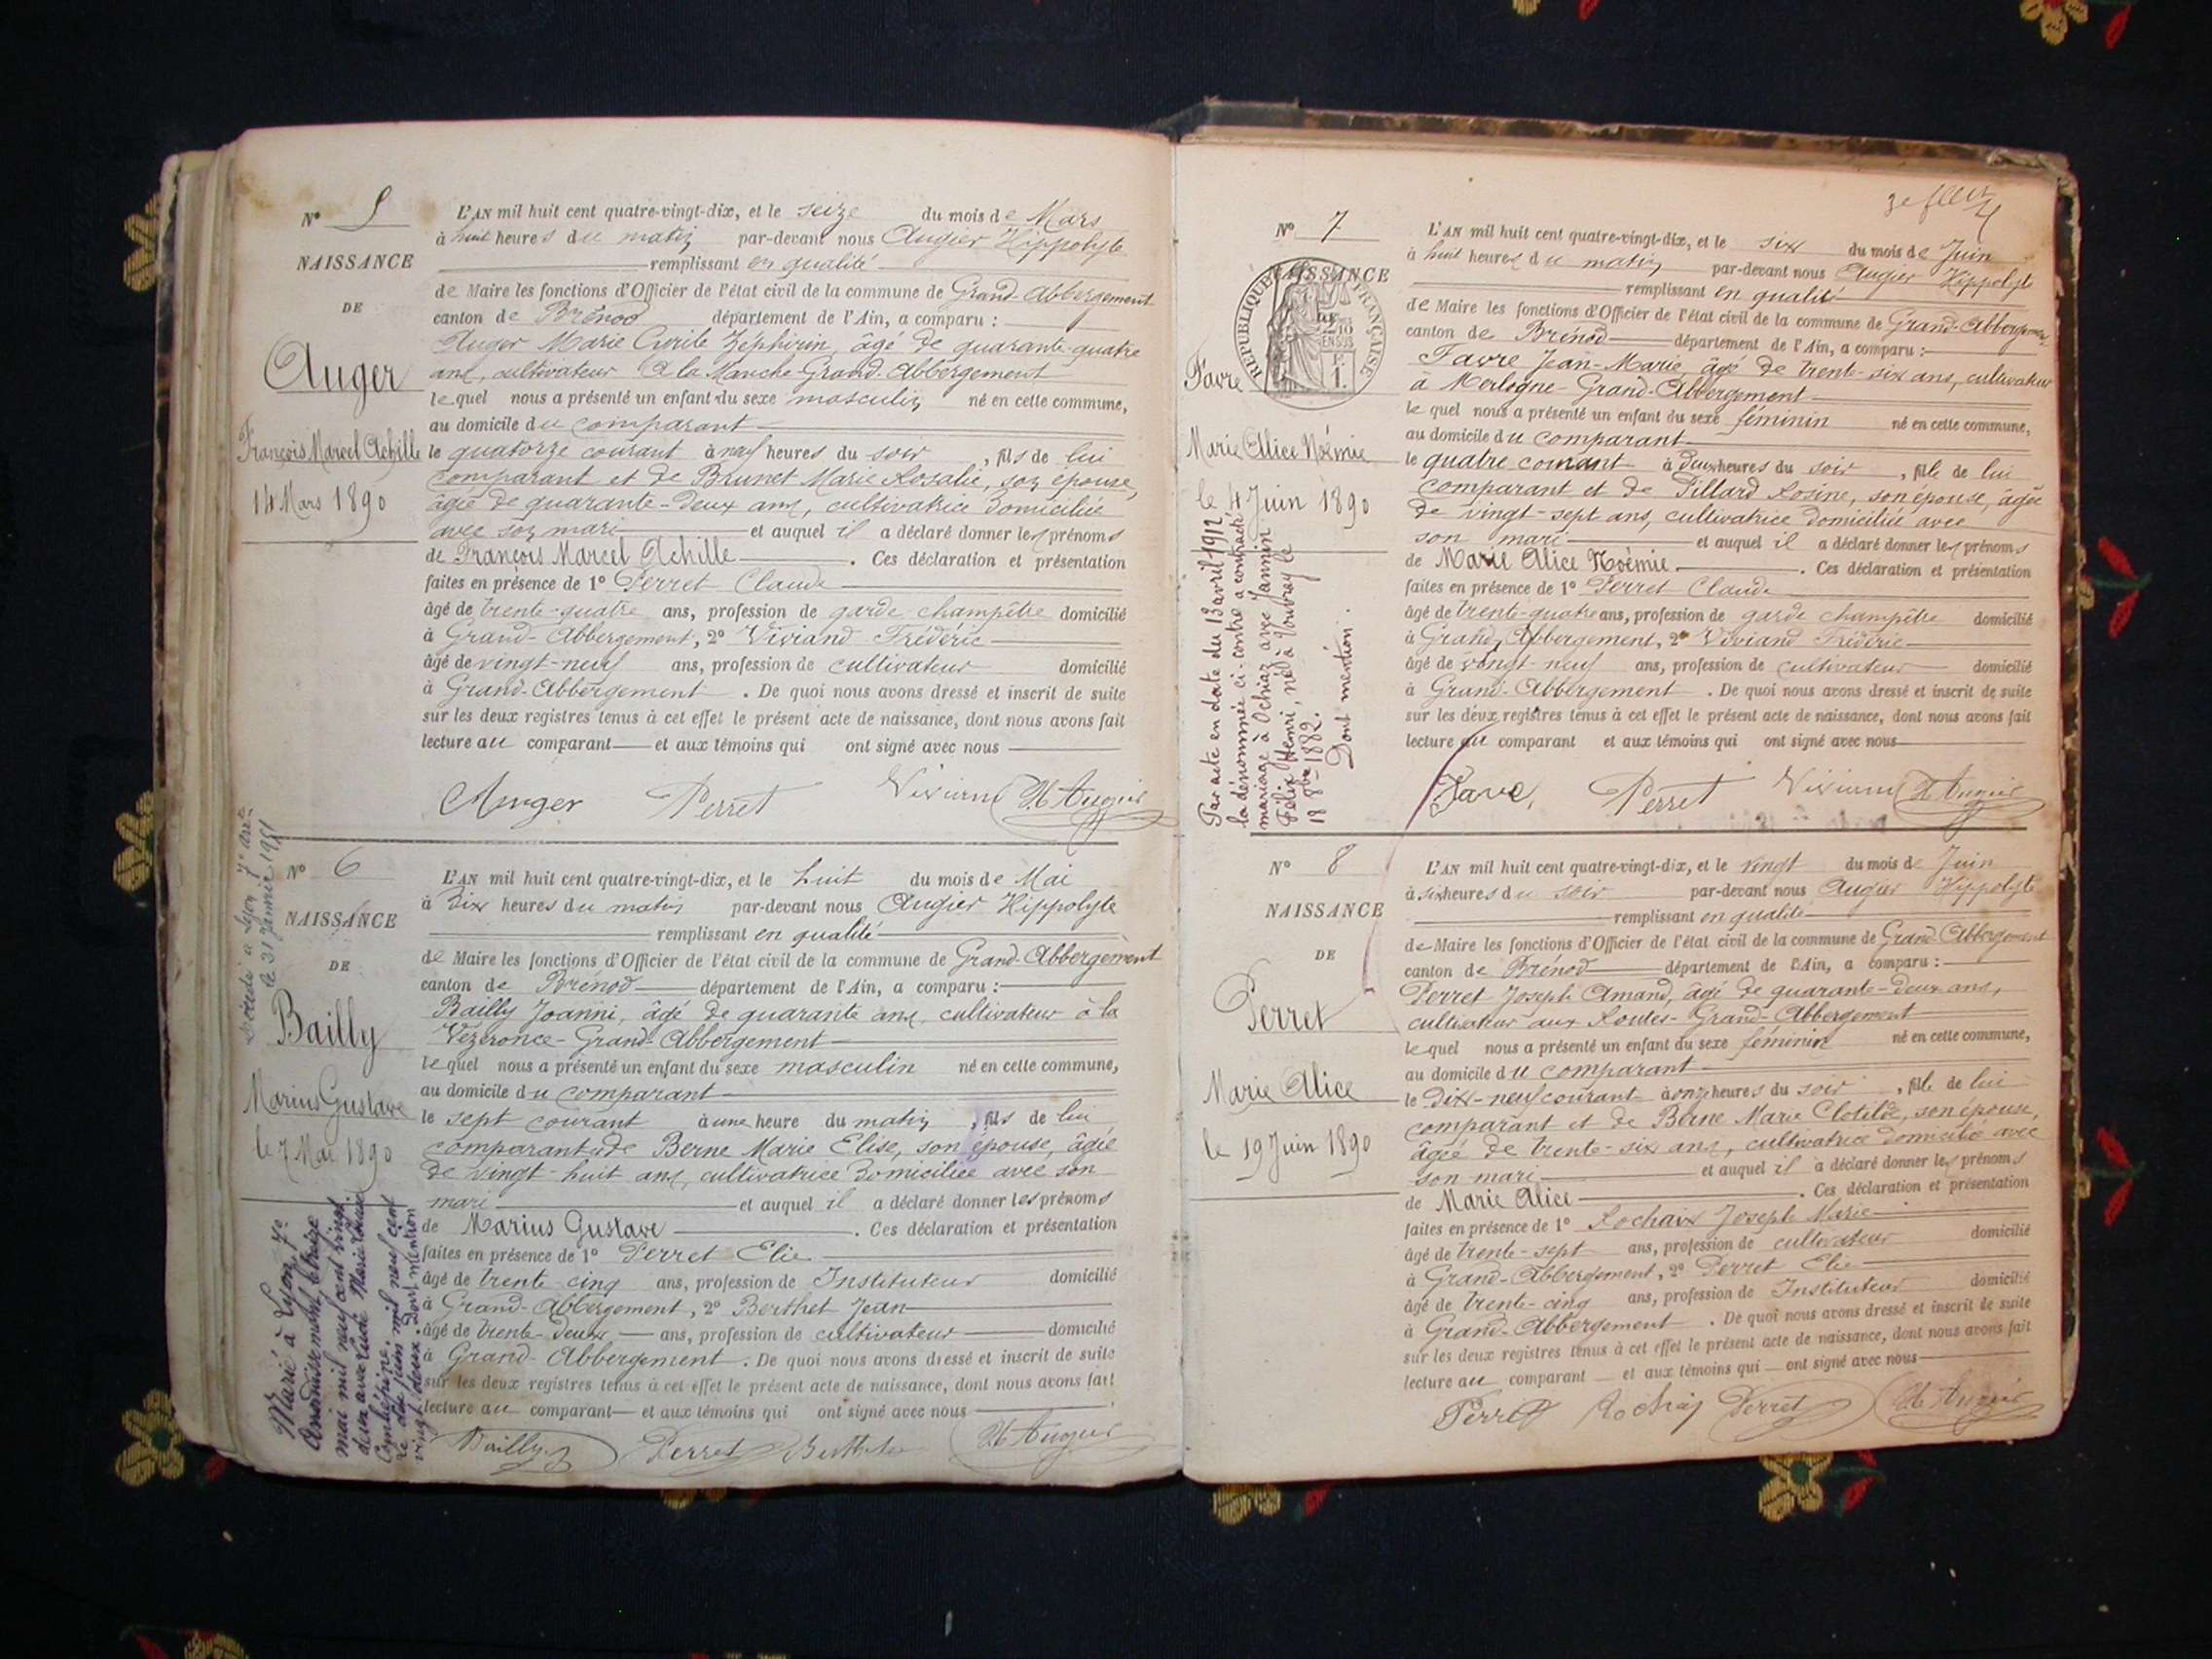 N° 5
NAISSANCE
DE
Auger
François Marcel Achille
14 Mars 1890
L'AN mil huit cent quatre-vingt-dix, et le seize du mois de Mars
à huit heures du matin par-devant nous Augier Hippolyte
remplissant en qualité
de Maire les fonctions d'Officier de l'état civil de la commune de Grand-Abbergement
canton de Brénod département de l'Ain, a comparu :
Auger Marie Cyrile Zéphirin, âgé de quarante-quatre
ans, cultivateur à la Manche Grand-Abbergement
lequel nous a présenté un enfant du sexe masculin né en cette commune,
au domicile du comparant
le quatorze courant à neuf heures du soir, fils de lui
comparant et de Brunet Marie Rosalie, son épouse,
âgée de quarante-deux ans, cultivatrice domiciliée
avec son mari et auquel il a déclaré donner les prénoms
de François Marcel Achille. Ces déclaration et présentation
faites en présence de 1° Perret Claude
âgé de trente-quatre ans, profession de garde champêtre domicilié
à Grand-Abbergement, 2° Viviand Frédéric
âgé de vingt-neuf ans, profession de cultivateur domicilié
à Grand-Abbergement. De quoi nous avons dressé et inscrit de suite
sur les deux registres tenus à cet effet le présent acte de naissance, dont nous avons fait
lecture au comparant et aux témoins qui ont signé avec nous
Auger Perret Viviand H Augier
Décédé à Lyon 7e arrt
le 31 Janvier 1951
N° 6
NAISSANCE
DE
Bailly
Marius Gustave
le 7 Mai 1890
Marié à Lyon 7e
Arrondissement le treize
mai mil neuf cent vingt
deux avec
le dix juin mil neuf cent
vingt deux. Dont mention
L'AN mil huit cent quatre-vingt-dix, et le huit du mois de Mai
à dix heures du matin par-devant nous Augier Hippolyte
remplissant en qualité
de Maire les fonctions d'Officier de l'état civil de la commune de Grand-Abbergement
canton de Brénod département de l'Ain, a comparu :
Bailly Joanni, âgé de quarante ans, cultivateur à la
Vézeronce-Grand-Abbergement
lequel nous a présenté un enfant du sexe masculin né en cette commune,
au domicile du comparant
le sept courant à une heure du matin, fils de lui
comparant et de Berne Marie Elise, son épouse, âgée
de vingt-huit ans, cultivatrice domiciliée avec son
mari et auquel il a déclaré donner les prénoms
de Marius Gustave. Ces déclaration et présentation
faites en présence de 1° Perret Elie
âgé de trente-cinq ans, profession de Instituteur domicilié
à Grand-Abbergement, 2° Berthet Jean
âgé de trente-deux ans, profession de cultivateur domicilié
à Grand-Abbergement. De quoi nous avons dressé et inscrit de suite
sur les deux registres tenus à cet effet le présent acte de naissance, dont nous avons fait
lecture au comparant et aux témoins qui ont signé avec nous
Bailly Perret Berthet H Augier
3e
N° 7
NAISSANCE
DE
RÉPUBLIQUE FRANÇAISE
Favre
Marie Alice Noémie
le 4 Juin 1890
Par acte en date du 13 avril 1912
la dénommée ci-contre a contracté
mariage à Ochiaz avec Jannin
Félix Henri, né à Vouvray le
18 8bre 1882.
Dont mention.
L'AN mil huit cent quatre-vingt-dix, et le six du mois de Juin
à huit heures du matin par-devant nous Augier Hippolyte
remplissant en qualité
de Maire les fonctions d'Officier de l'état civil de la commune de Grand-Abbergement
canton de Brénod département de l'Ain, a comparu :
Favre Jean-Marie, âgé de trente-six ans, cultivateur
à Merlogne-Grand-Abbergement
lequel nous a présenté un enfant du sexe féminin né en cette commune,
au domicile du comparant
le quatre courant à deux heures du soir, fille de lui
comparant et de Pillard Rosine, son épouse, âgée
de vingt-sept ans, cultivatrice domiciliée avec
son mari et auquel il a déclaré donner les prénoms
de Marie Alice Noémie. Ces déclaration et présentation
faites en présence de 1° Perret Claude
âgé de trente-quatre ans, profession de garde champêtre domicilié
à Grand-Abbergement, 2° Viviand Frédéric
âgé de vingt-neuf ans, profession de cultivateur domicilié
à Grand-Abbergement. De quoi nous avons dressé et inscrit de suite
sur les deux registres tenus à cet effet le présent acte de naissance, dont nous avons fait
lecture au comparant et aux témoins qui ont signé avec nous
Favre, Perret Viviand H Augier
N° 8
NAISSANCE
DE
Perret
Marie Alice
le 19 Juin 1890
L'AN mil huit cent quatre-vingt-dix, et le vingt du mois de Juin
à six heures du soir par-devant nous Augier Hippolyte
remplissant en qualité
de Maire les fonctions d'Officier de l'état civil de la commune de Grand-Abbergement
canton de Brénod département de l'Ain, a comparu :
Perret Joseph Amand, âgé de quarante-deux ans,
cultivateur aux Routes-Grand-Abbergement
lequel nous a présenté un enfant du sexe féminin né en cette commune,
au domicile du comparant
le dix-neuf courant à onze heures du soir, fille de lui
comparant et de Berne Marie Clotilde, son épouse,
âgée de trente-six ans, cultivatrice domicilié avec
son mari et auquel il a déclaré donner les prénoms
de Marie Alice. Ces déclaration et présentation
faites en présence de 1° Rochaix Joseph Marie
âgé de trente-sept ans, profession de cultivateur domicilié
à Grand-Abbergement, 2° Perret Elie
âgé de trente-cinq ans, profession de Instituteur domicilié
à Grand-Abbergement. De quoi nous avons dressé et inscrit de suite
sur les deux registres tenus à cet effet le présent acte de naissance, dont nous avons fait
lecture au comparant et aux témoins qui ont signé avec nous
Perret Rochaix Perret H Augier